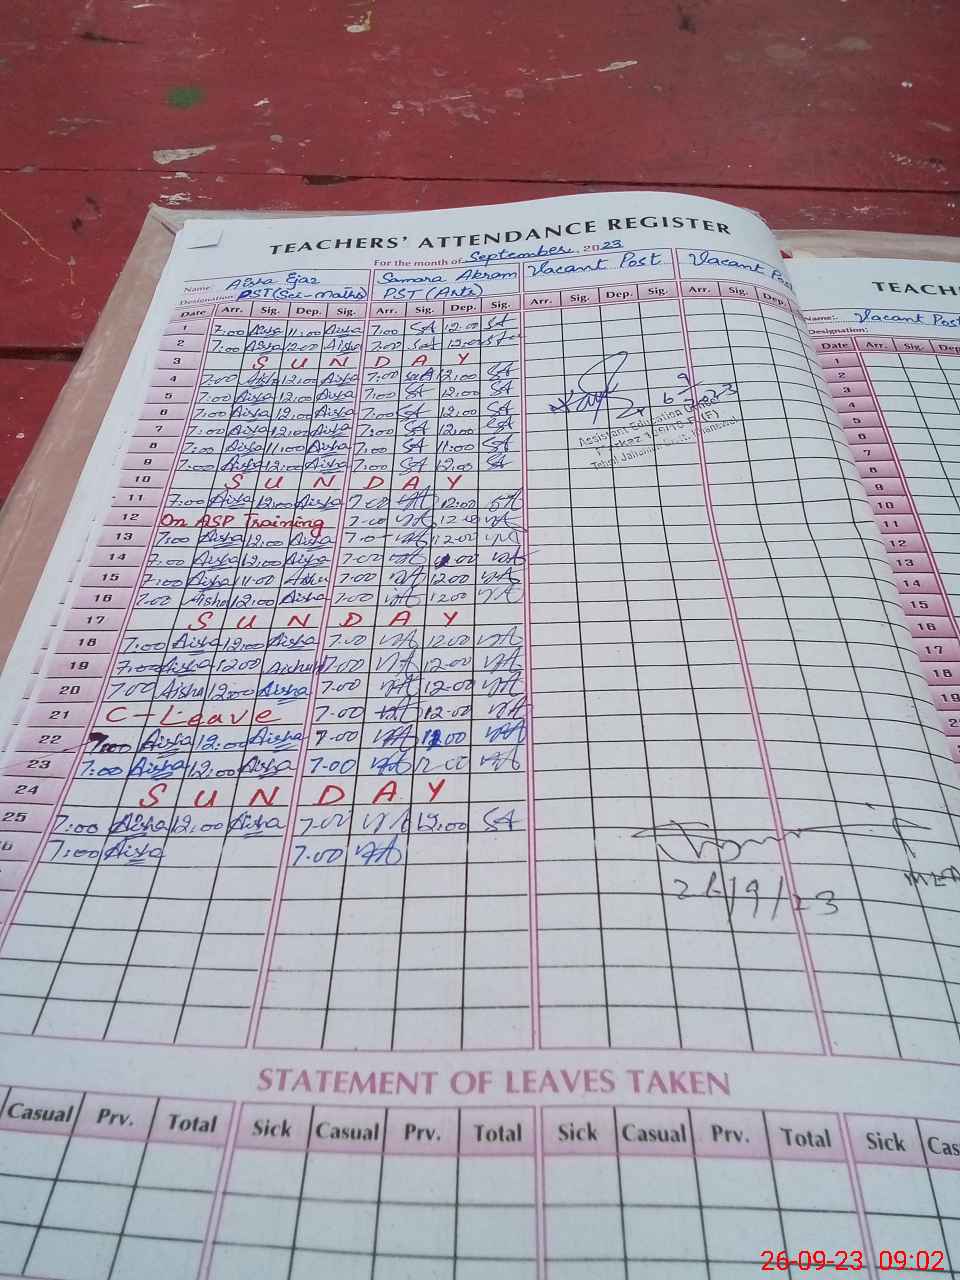 TEACHERS' ATTENDANCE REGISTER
For the month of September 2023
Name: Aisha Ejaz Samara Akram Vacant Post Vacant Po
Designation: PST(Sci-Maths) PST (Arts)
Date Arr. Sig. Dep. Sig. Arr. Sig. Dep. Sig. Arr. Sig. Dep. Sig. Arr. Sig. Dep.
1 7:00 Aisha 11:00 Aisha 7:00 SA 12:00 SA
2 7:00 Aisha 12:00 Aisha 7:00 SA 12:00
3 S U N D A Y
4 7:00 Aisha 12:00 Aisha 7:00 SA 12:00 SA
5 7:00 Aisha 12:00 Aisha 7:00 SA 12:00 SA
6 7:00 Aisha 12:00 Aisha 7:00 SA 12:00 SA
7 7:00 Aisha 12:00 Aisha 7:00 SA 12:00 SA
8 7:00 Aisha 11:00 Aisha 7:00 SA 11:00 SA
9 7:00 Aisha 12:00 Aisha 7:00 SA 12:00 SA
10 S U N D A Y
11 7:00 Aisha 12:00 Aisha 7-00 SA 12:00 SA
12 On ASP Training 7-00 SA 12-00 SA
13 7:00 Aisha 12:00 Aisha 7-0 SA 12-00 SA
14 7:00 Aisha 12:00 Aisha 7-00 SA 00 SA
15 7:00 Aisha 11-00 Aisha 7-00 SA 1200 SA
16 7:00 Aisha 12:00 Aisha 7-00 SA 1200 SA
17 S U N D A Y
18 7:00 Aisha 12:00 Aisha 7-00 SA 12-00 SA
19 7:00 Aisha 12:00 Aisha 7-00 SA 12-00 SA
20 7:00 Aisha 12:00 Aisha 7-00 SA 12-00 SA
21 C-Leave 7-00 SA 12-00 SA
22 7:00 Aisha 12:00 Aisha 7-00 SA 12:00 SA
23 7:00 Aisha 12:00 Aisha 7-00 SA 12-00 SA
24 S U N D A Y
25 7:00 Aisha 12:00 Aisha 7-00 SA 12:00 SA
6 7:00 Aisha 7.00 SA
6/9
Assistant Education Officer
26/9/23
MEA
STATEMENT OF LEAVES TAKEN
Casual Prv. Total Sick Casual Prv. Total Sick Casual Prv. Total Sick Cas
TEACH
Name: Vacant Post
Designation:
Date Arr. Sig. Dep
1
2
3
4
5
6
7
8
9
10
11
12
13
14
15
16
17
18
19
2
26-09-23 09:02